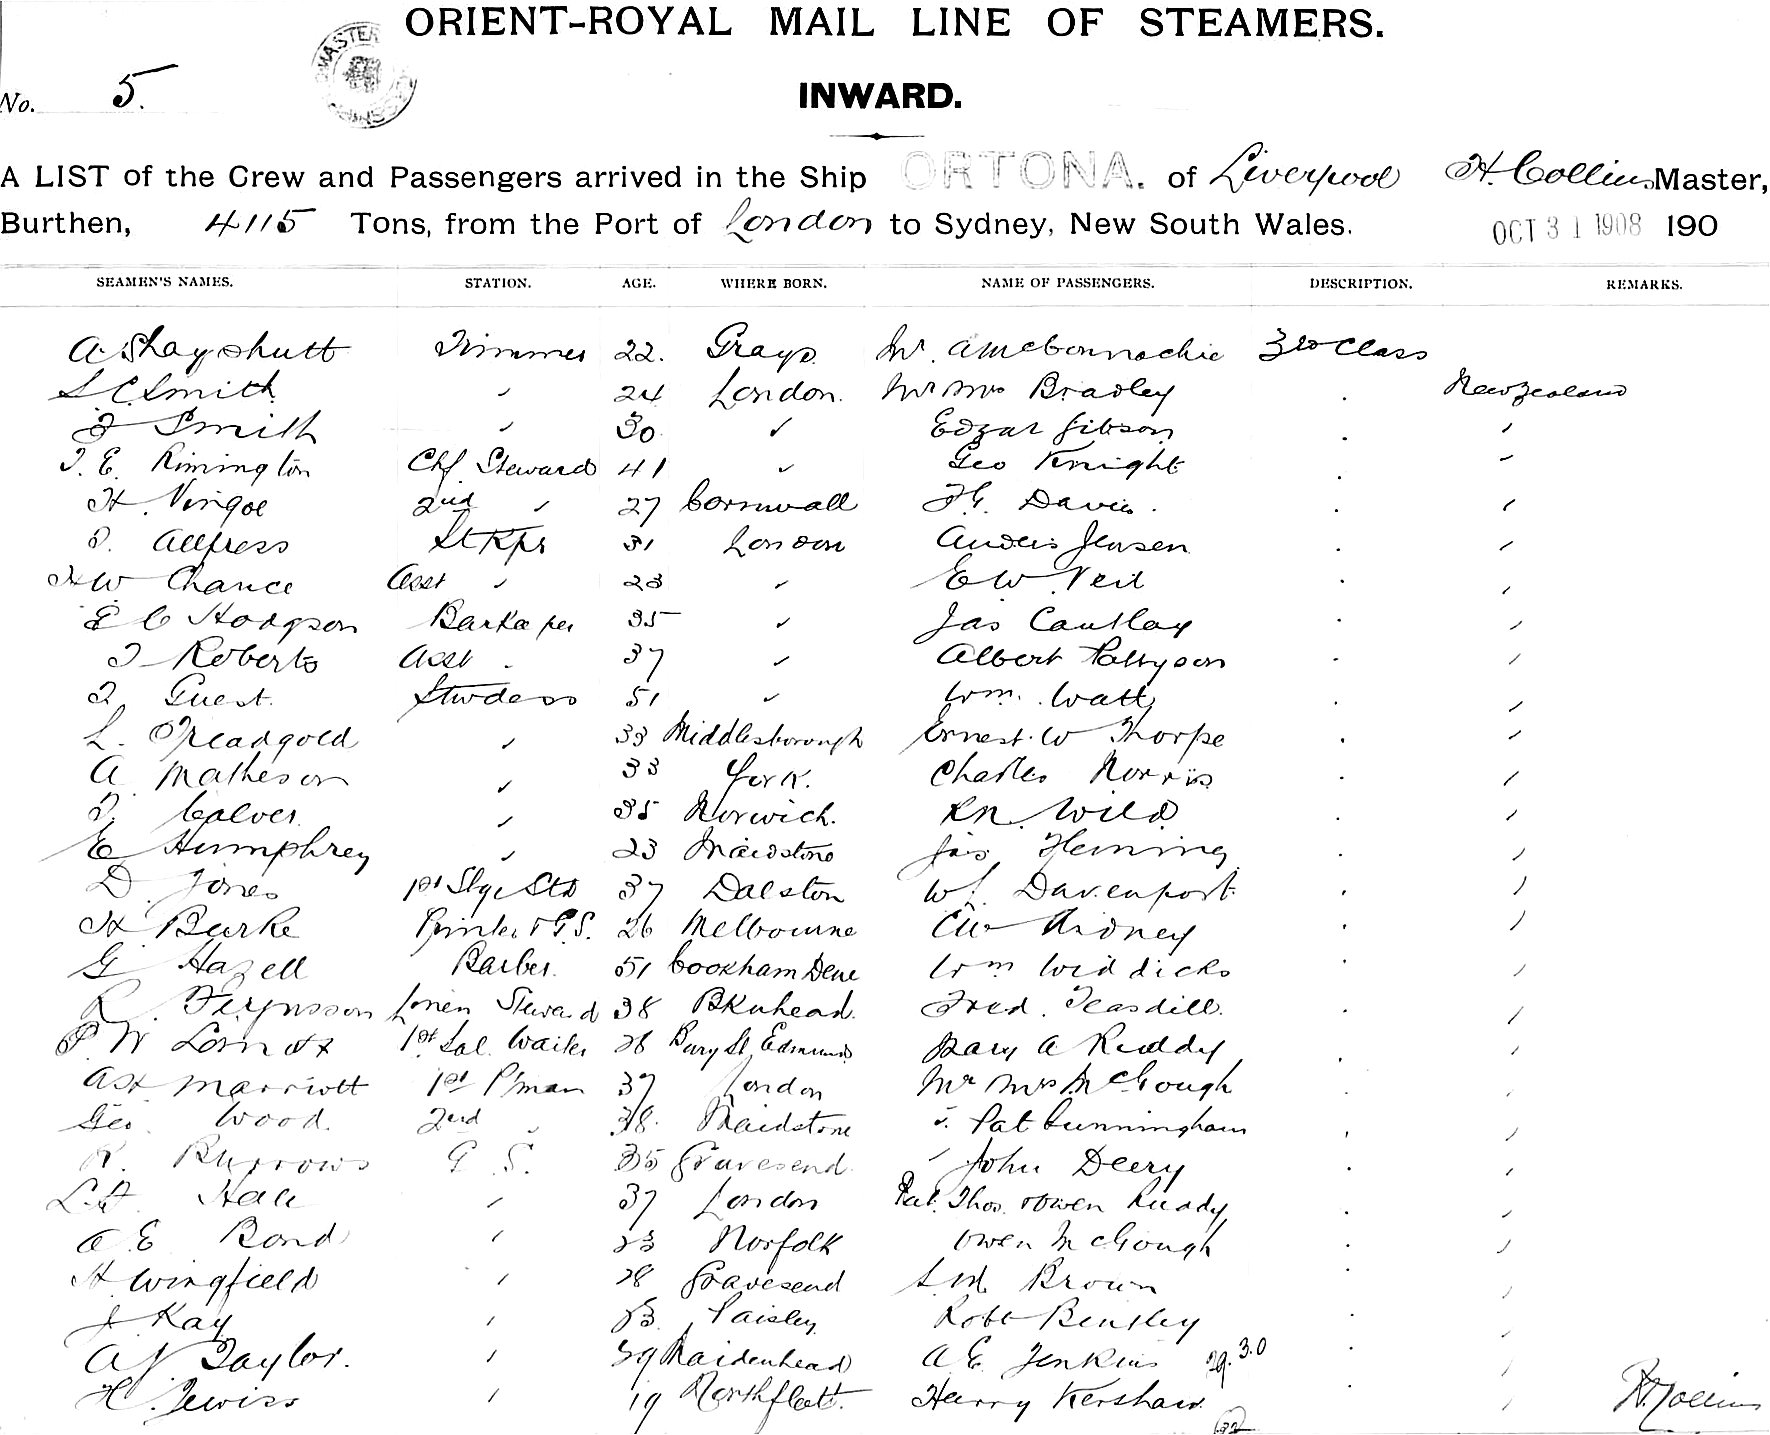 ORIENT-ROYAL MAIL LINE OF STEAMERS.
MASTER
No. 5.
INWARD.
A LIST of the Crew and Passengers arrived in the Ship ORTONA. of Liverpool H. Collins Master,
Burthen, 4115 Tons, from the Port of London to Sydney, New South Wales. OCT 31 1908 190
SEAMEN'S NAMES. STATION. AGE. WHERE BORN. NAME OF PASSENGERS. DESCRIPTION. REMARKS.
A Shayshutt Trimmer 22. Grays. Mr. A McConnachie 3rd Class
S C Smith " 24 London. Mr Mrs Bradley . New Zealand
Smith " 30 " Edgar Gibson . "
T. E. Rimington Chf Steward 41 " Geo Knight . "
H. Vingoe 2nd " 27 Cornwall Davies . "
Allfress St Kpr 31 London Anders Jensen . "
H W Chance Asst " 23 " E W Veil . "
E C Hodgson Barkeeper 35 " Jas Cautlay . "
Roberts Asst " 37 " Albert Pattyson . "
Guest. Stwdess 51 " Wm. Watt . "
L. Treadgold " 33 Middlesborough Ernest W Thorpe . "
A Matheson " 33 York. Charles Norris . "
Calver " 35 Norwich. R N. Wild . "
E Humphrey " 23 Maidstone Jas Fleming . "
D. Jones 1st Stge Std 37 Dalston Davenport . "
H Burke Printer & G.S. 26 Melbourne Kidney . "
G Hazell Barber. 51 Cookham Dene Wm Widdicks . "
R Fergusson Linen Steward 38 Bknhead. Fred. Teasdill. . "
P W Lomax 1st Sal. Waiter Bury St Edmunds Mary A Ruddy . "
A H Marriott 1st P'man 37 London Mr Mrs McGough . "
Geo. Wood. 2nd " 38. Maidstone Pat Cunningham . "
R. Burrows G S. 35 Gravesend. " John Deery . "
Hall " 37 London Pat. Thos. & Owen Ruddy . "
A E Bond " 23 Norfolk Owen McGough . "
H Wingfield " 28 Gravesend Brown . "
J Kay " Paisley. Robt Bentley . "
A J Taylor. " 29 Maidenhead A E Jenkins 29. 30 . "
H. Jewiss " 19 Northfleet. Harry Kershaw. . " H. Collins
32